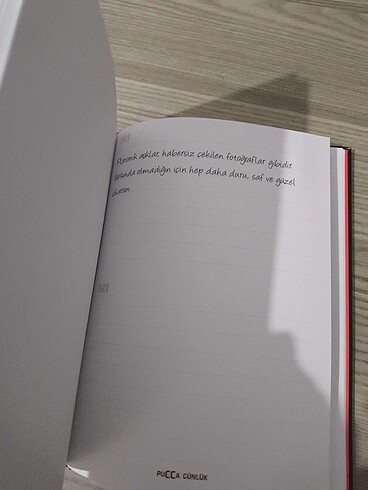 Platonik aşklar, habersiz çekilen fotoğraflar gibidir.
Farkında olmadığın için hep daha duru, saf ve güzel
çıkarsın.
PUCCA GÜNLÜK